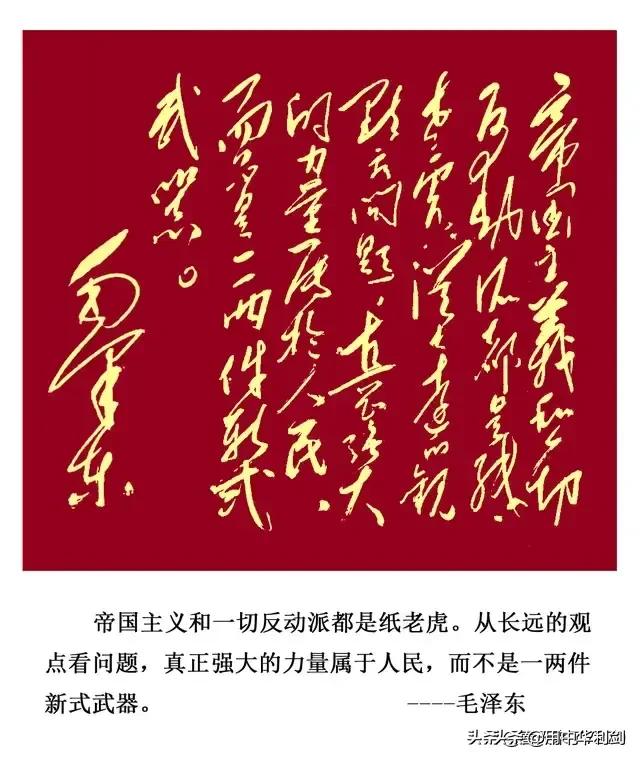 帝国主義和一切
反动派都是纸
老虎。從长远的观
点看问题，真正强大
的力量属於人民，
而不是一两件新式
武器。
毛泽东
帝国主义和一切反动派都是纸老虎。从长远的观
点看问题，真正强大的力量属于人民，而不是一两件
新式武器。 ----毛泽东